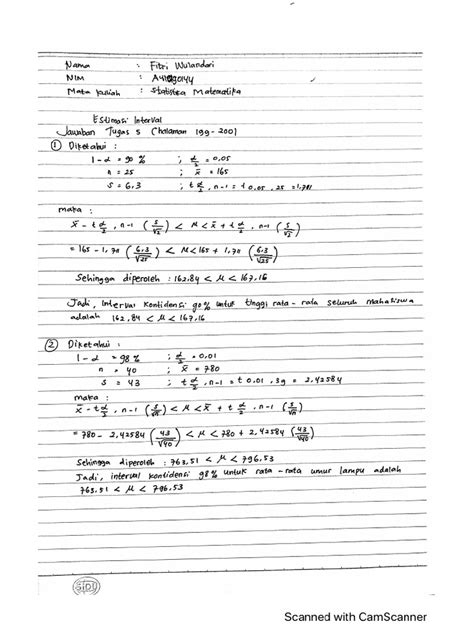 Nama : Fitri Wulandari
NIM : A410190144
Mata kuliah : Statistika Matematika
Estimasi Interval
Jawaban Tugas 5 (halaman 199-200)
① Diketahui :
1-α = 90 % ; α/2 = 0,05
n = 25 ; x̄ = 165
s = 6,3 ; t α/2, n-1 = t 0,05, 25 = 1,711
maka :
x̄ - t α/2, n-1 (s/√2) < μ < x̄ + t α/2, n-1 (s/√2)
= 165 - 1,711 (6,3/√25) < μ < 165 + 1,711 (6,3/√25)
Sehingga diperoleh : 162,84 < μ < 167,16
Jadi, Interval konfidensi 90% untuk tinggi rata-rata seluruh mahasiswa
adalah 162,84 < μ < 167,16
② Diketahui :
1-α = 98 % ; α/2 = 0,01
n = 40 ; x̄ = 780
s = 43 ; t α/2, n-1 = t 0,01, 39 = 2,42584
maka :
x̄ - t α/2, n-1 (s/√n) < μ < x̄ + t α/2, n-1 (s/√n)
= 780 - 2,42584 (43/√40) < μ < 780 + 2,42584 (43/√40)
Sehingga diperoleh : 763,51 < μ < 796,53
Jadi, interval konfidensi 98% untuk rata-rata umur lampu adalah
763,51 < μ < 796,53
SIDU
Scanned with CamScanner